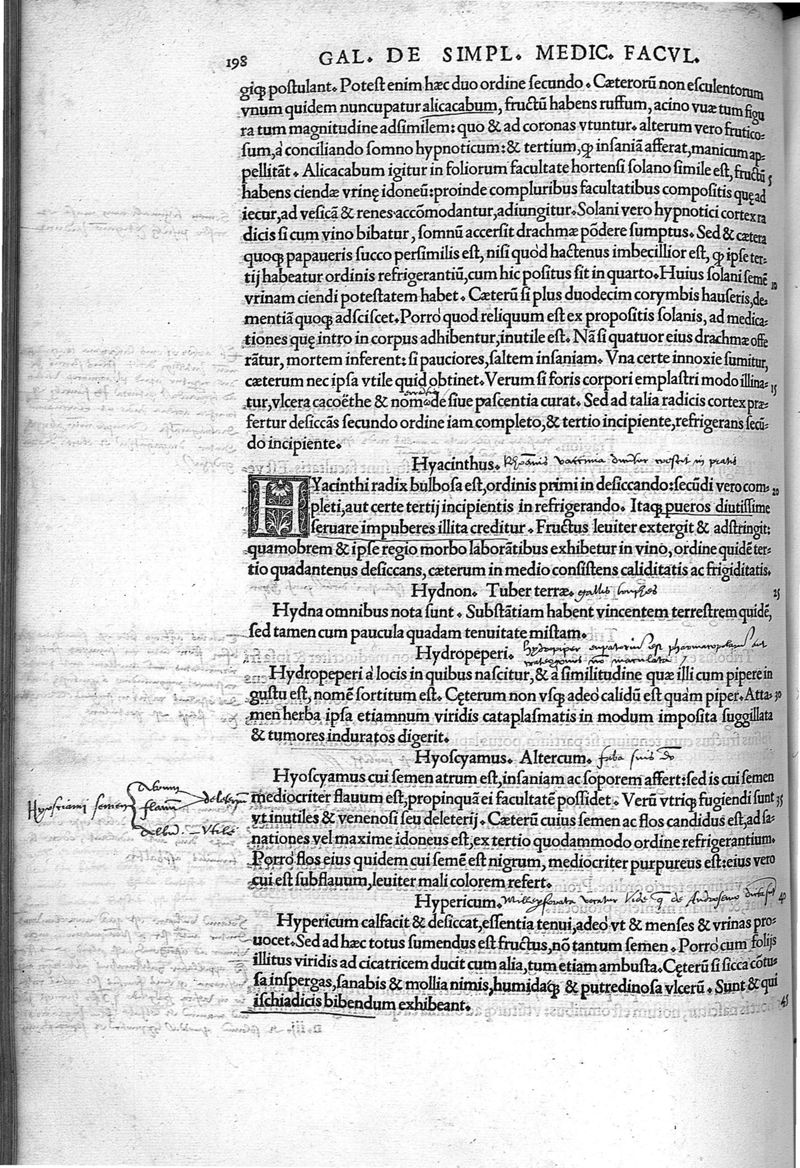 198 GAL. DE SIMPL. MEDIC. FACVL.
giqꝫ postulant. Potest enim hæc duo ordine secundo. Cæterorũ non esculentorum
vnum quidem nuncupatur alicacabum, fructũ habens ruffum, acino vuæ tum figu
ra tum magnitudine adsimilem: quo & ad coronas vtuntur. alterum vero frutico-
sum, à conciliando somno hypnoticum: & tertium, ꝙ insaniã afferat, manicum ap-
pellitãt. Alicacabum igitur in foliorum facultate hortensi solano simile est, fructũ 5
habens ciendæ vrinę idoneũ: proinde compluribus facultatibus compositis quę ad
iecur, ad vesicã & renes accõmodantur, adiungitur. Solani vero hypnotici cortex ra
dicis si cum vino bibatur, somnũ accersit drachmæ põdere sumptus. Sed & cætera
quoqꝫ papaueris succo persimilis est, nisi quòd hactenus imbecillior est, ꝙ ipse ter-
tij habeatur ordinis refrigerantiũ, cum hic positus sit in quarto. Huius solani semẽ 10
vrinam ciendi potestatem habet. Cæterũ si plus duodecim corymbis hauseris, de-
mentiã quoqꝫ adsciscet. Porrò quod reliquum est ex propositis solanis, ad medica-
tiones quę intro in corpus adhibentur, inutile est. Nã si quatuor eius drachmæ offe
rãtur, mortem inferent: si pauciores, saltem insaniam. Vna certe innoxie sumitur,
cæterum nec ipsa vtile quid obtinet. Verum si foris corpori emplastri modo illina- 15
tur, vlcera cacoëthe & nomωde siue pascentia curat. Sed ad talia radicis cortex præ-
fertur desiccãs secundo ordine iam completo, & tertio incipiente, refrigerans secũ-
do incipiente.
Hyacinthus. vaccinia in pratis
HYacinthi radix bulbosa est, ordinis primi in desiccando: secũdi vero com- 20
pleti, aut certe tertij incipientis in refrigerando. Itaqꝫ pueros diutissime
seruare impuberes illita creditur. Fructus leuiter extergit & adstringit:
quamobrem & ipse regio morbo laborãtibus exhibetur in vino, ordine quidẽ ter-
tio quadantenus desiccans, cæterum in medio consistens caliditatis ac frigiditatis.
Hydnon. Tuber terræ. gallis 25
Hydna omnibus nota sunt. Substãtiam habent vincentem terrestrem quidẽ,
sed tamen cum paucula quadam tenuitate mistam.
Hydropeperi. hydropiper
Hydropeperi à locis in quibus nascitur, & à similitudine quæ illi cum pipere in
gustu est, nomẽ sortitum est. Cęterum non vsqꝫ adeò calidũ est quàm piper. Atta- 30
men herba ipsa etiamnum viridis cataplasmatis in modum imposita suggillata
& tumores induratos digerit.
Hyoscyamus. Altercum. faba suis
Hyoscyamus cui semen atrum est, insaniam ac soporem affert: sed is cui semen
mediocriter flauum est, propinquã ei facultatẽ possidet. Verũ vtriqꝫ fugiendi sunt 35
vt inutiles & venenosi seu deleterij. Cæterũ cuius semen ac flos candidus est, ad sa-
nationes vel maxime idoneus est, ex tertio quodammodo ordine refrigerantium.
Porrò flos eius quidem cui semẽ est nigrum, mediocriter purpureus est: eius vero
cui est subflauum, leuiter mali colorem refert.
Hyosciami semen
flauũ
album - vtile
Hypericum. 40
Hypericum calfacit & desiccat, essentia tenui, adeò vt & menses & vrinas pro-
uocet. Sed ad hæc totus sumendus est fructus, nõ tantum semen. Porrò cum folijs
illitus viridis ad cicatricem ducit cum alia, tum etiam ambusta. Cęterũ si sicca cõtu-
sa inspergas, sanabis & mollia nimis, humidaqꝫ & putredinosa vlcerũ. Sunt & qui
ischiadicis bibendum exhibeant. 45